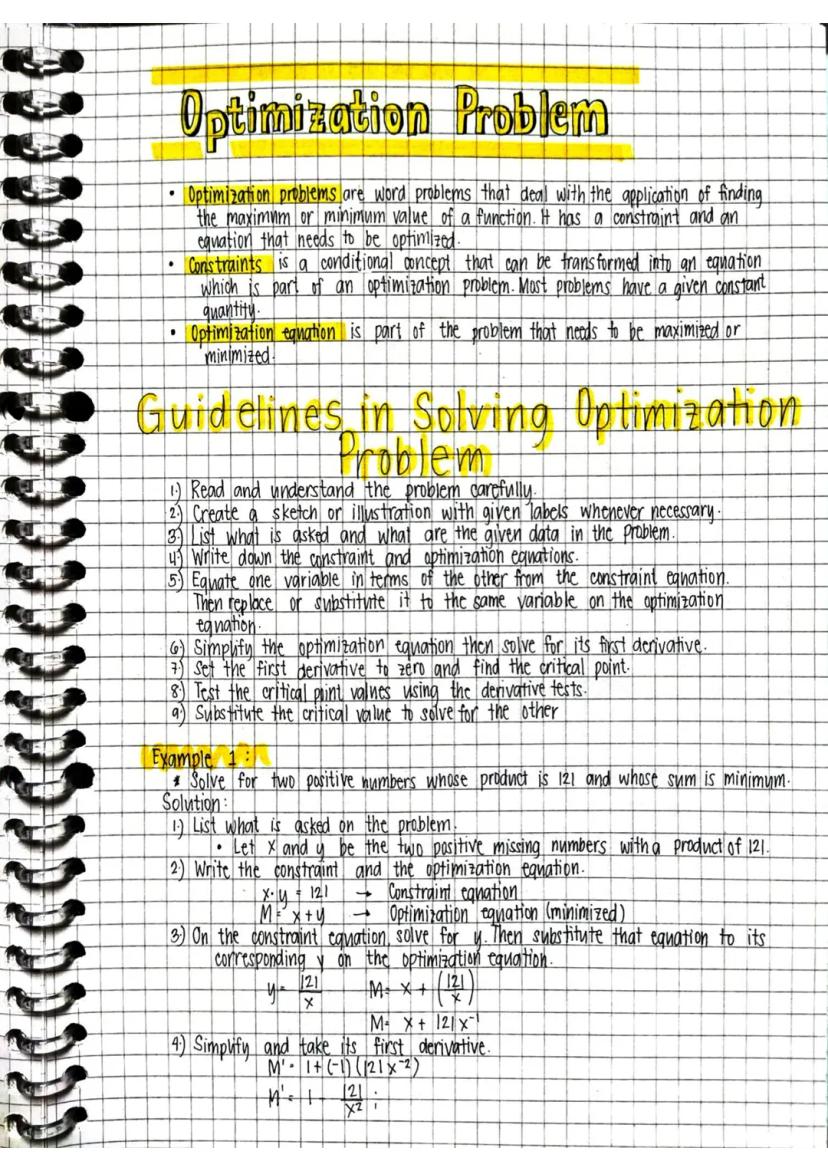 Optimization Problem
• Optimization problems are word problems that deal with the application of finding
the maximum or minimum value of a function. It has a constraint and an
equation that needs to be optimized.
• Constraints is a conditional concept that can be transformed into an equation
which is part of an optimization problem. Most problems have a given constant
quantity.
• Optimization equation is part of the problem that needs to be maximized or
minimized.
Guidelines in Solving Optimization
Problem
1.) Read and understand the problem carefully.
2.) Create a sketch or illustration with given labels whenever necessary.
3.) List what is asked and what are the given data in the problem.
4.) Write down the constraint and optimization equations.
5.) Equate one variable in terms of the other from the constraint equation.
Then replace or substitute it to the same variable on the optimization
equation.
6.) Simplify the optimization equation then solve for its first derivative.
7.) Set the first derivative to zero and find the critical point.
8.) Test the critical point values using the derivative tests.
9.) Substitute the critical value to solve for the other
Example 1:
* Solve for two positive numbers whose product is 121 and whose sum is minimum.
Solution:
1.) List what is asked on the problem.
• Let x and y be the two positive missing numbers with a product of 121.
2.) Write the constraint and the optimization equation.
x·y = 121 → Constraint equation
M = x+y → Optimization equation (minimized)
3.) On the constraint equation, solve for y. Then substitute that equation to its
corresponding y on the optimization equation.
y = 121/x M = x + (121/x)
M = x + 121x⁻¹
4.) Simplify and take its first derivative.
M' = 1 + (-1)(121x⁻²)
M' = 1 - 121/x² ;